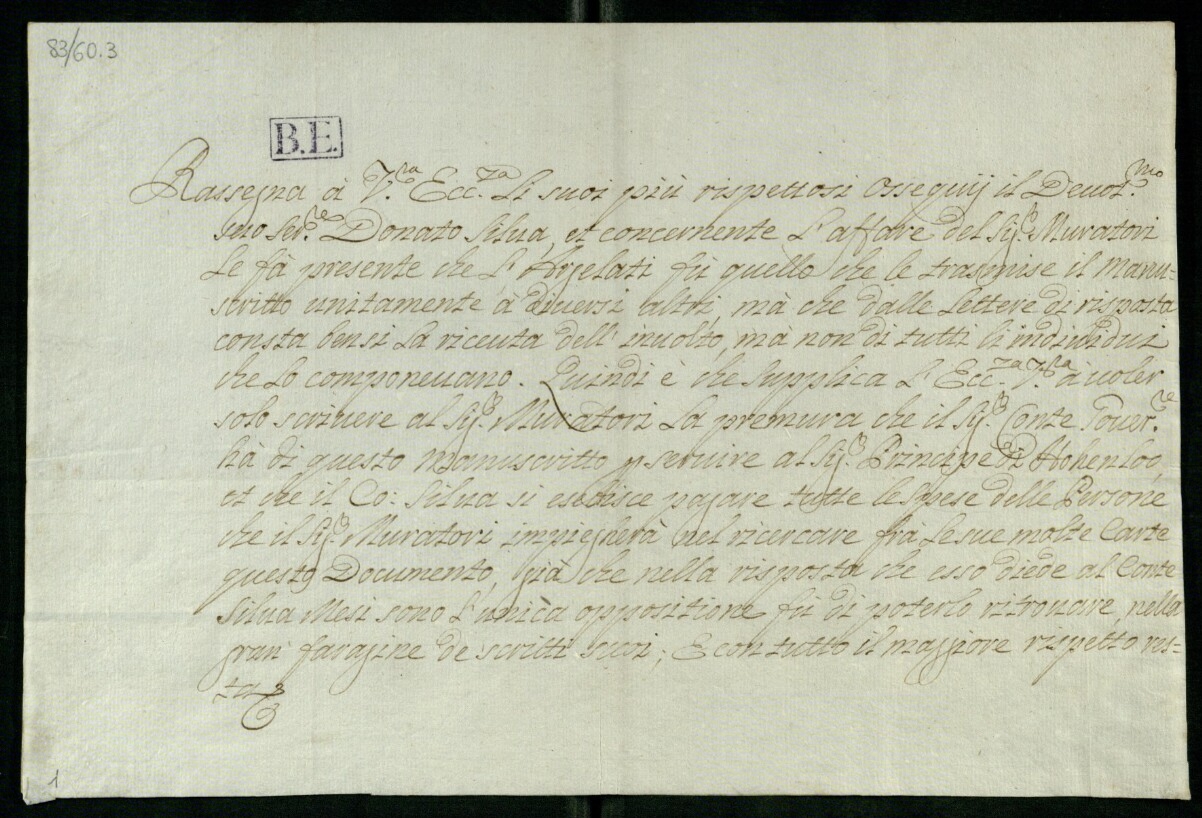 83/60.3
B.E.
Rassegna à V.ra Ecc.za Li suoi più rispettosi ossequij il Deuot.mo
suo Ser.re Donato Silua, et concernente L'affare del Sig.r Muratori
Le fà presente che L'Argelati fù quello che le trasmise il Manu=
scritto unitamente à diuersi altri, mà che dalle Lettere di risposta
consta bensi La riceuta dell'inuolto, mà non di tutti li indiuidui
che Lo componeuano. Quindi è che supplica L'Ecc.za V.ra à uoler
solo scriuere al Sig.r Muratori La premura che il Sig.r Conte Gouer.re
hà di questo manuscritto p seruire al Sig.r Principe di Hohenloo,
et che il Co: Silua si esebisce pagare tutte le spese delle Persone
che il Sig.r Muratori impiegherà nel ricercare frà Le sue molte Carte
questo Documento, già che nella risposta che esso diede al Conte
Silua Mesi sono L'unica oppositione fù di poterlo ritrouare, nella
gran faragine de scritti suoi; E con tutto il maggiore rispetto res=
ta
1